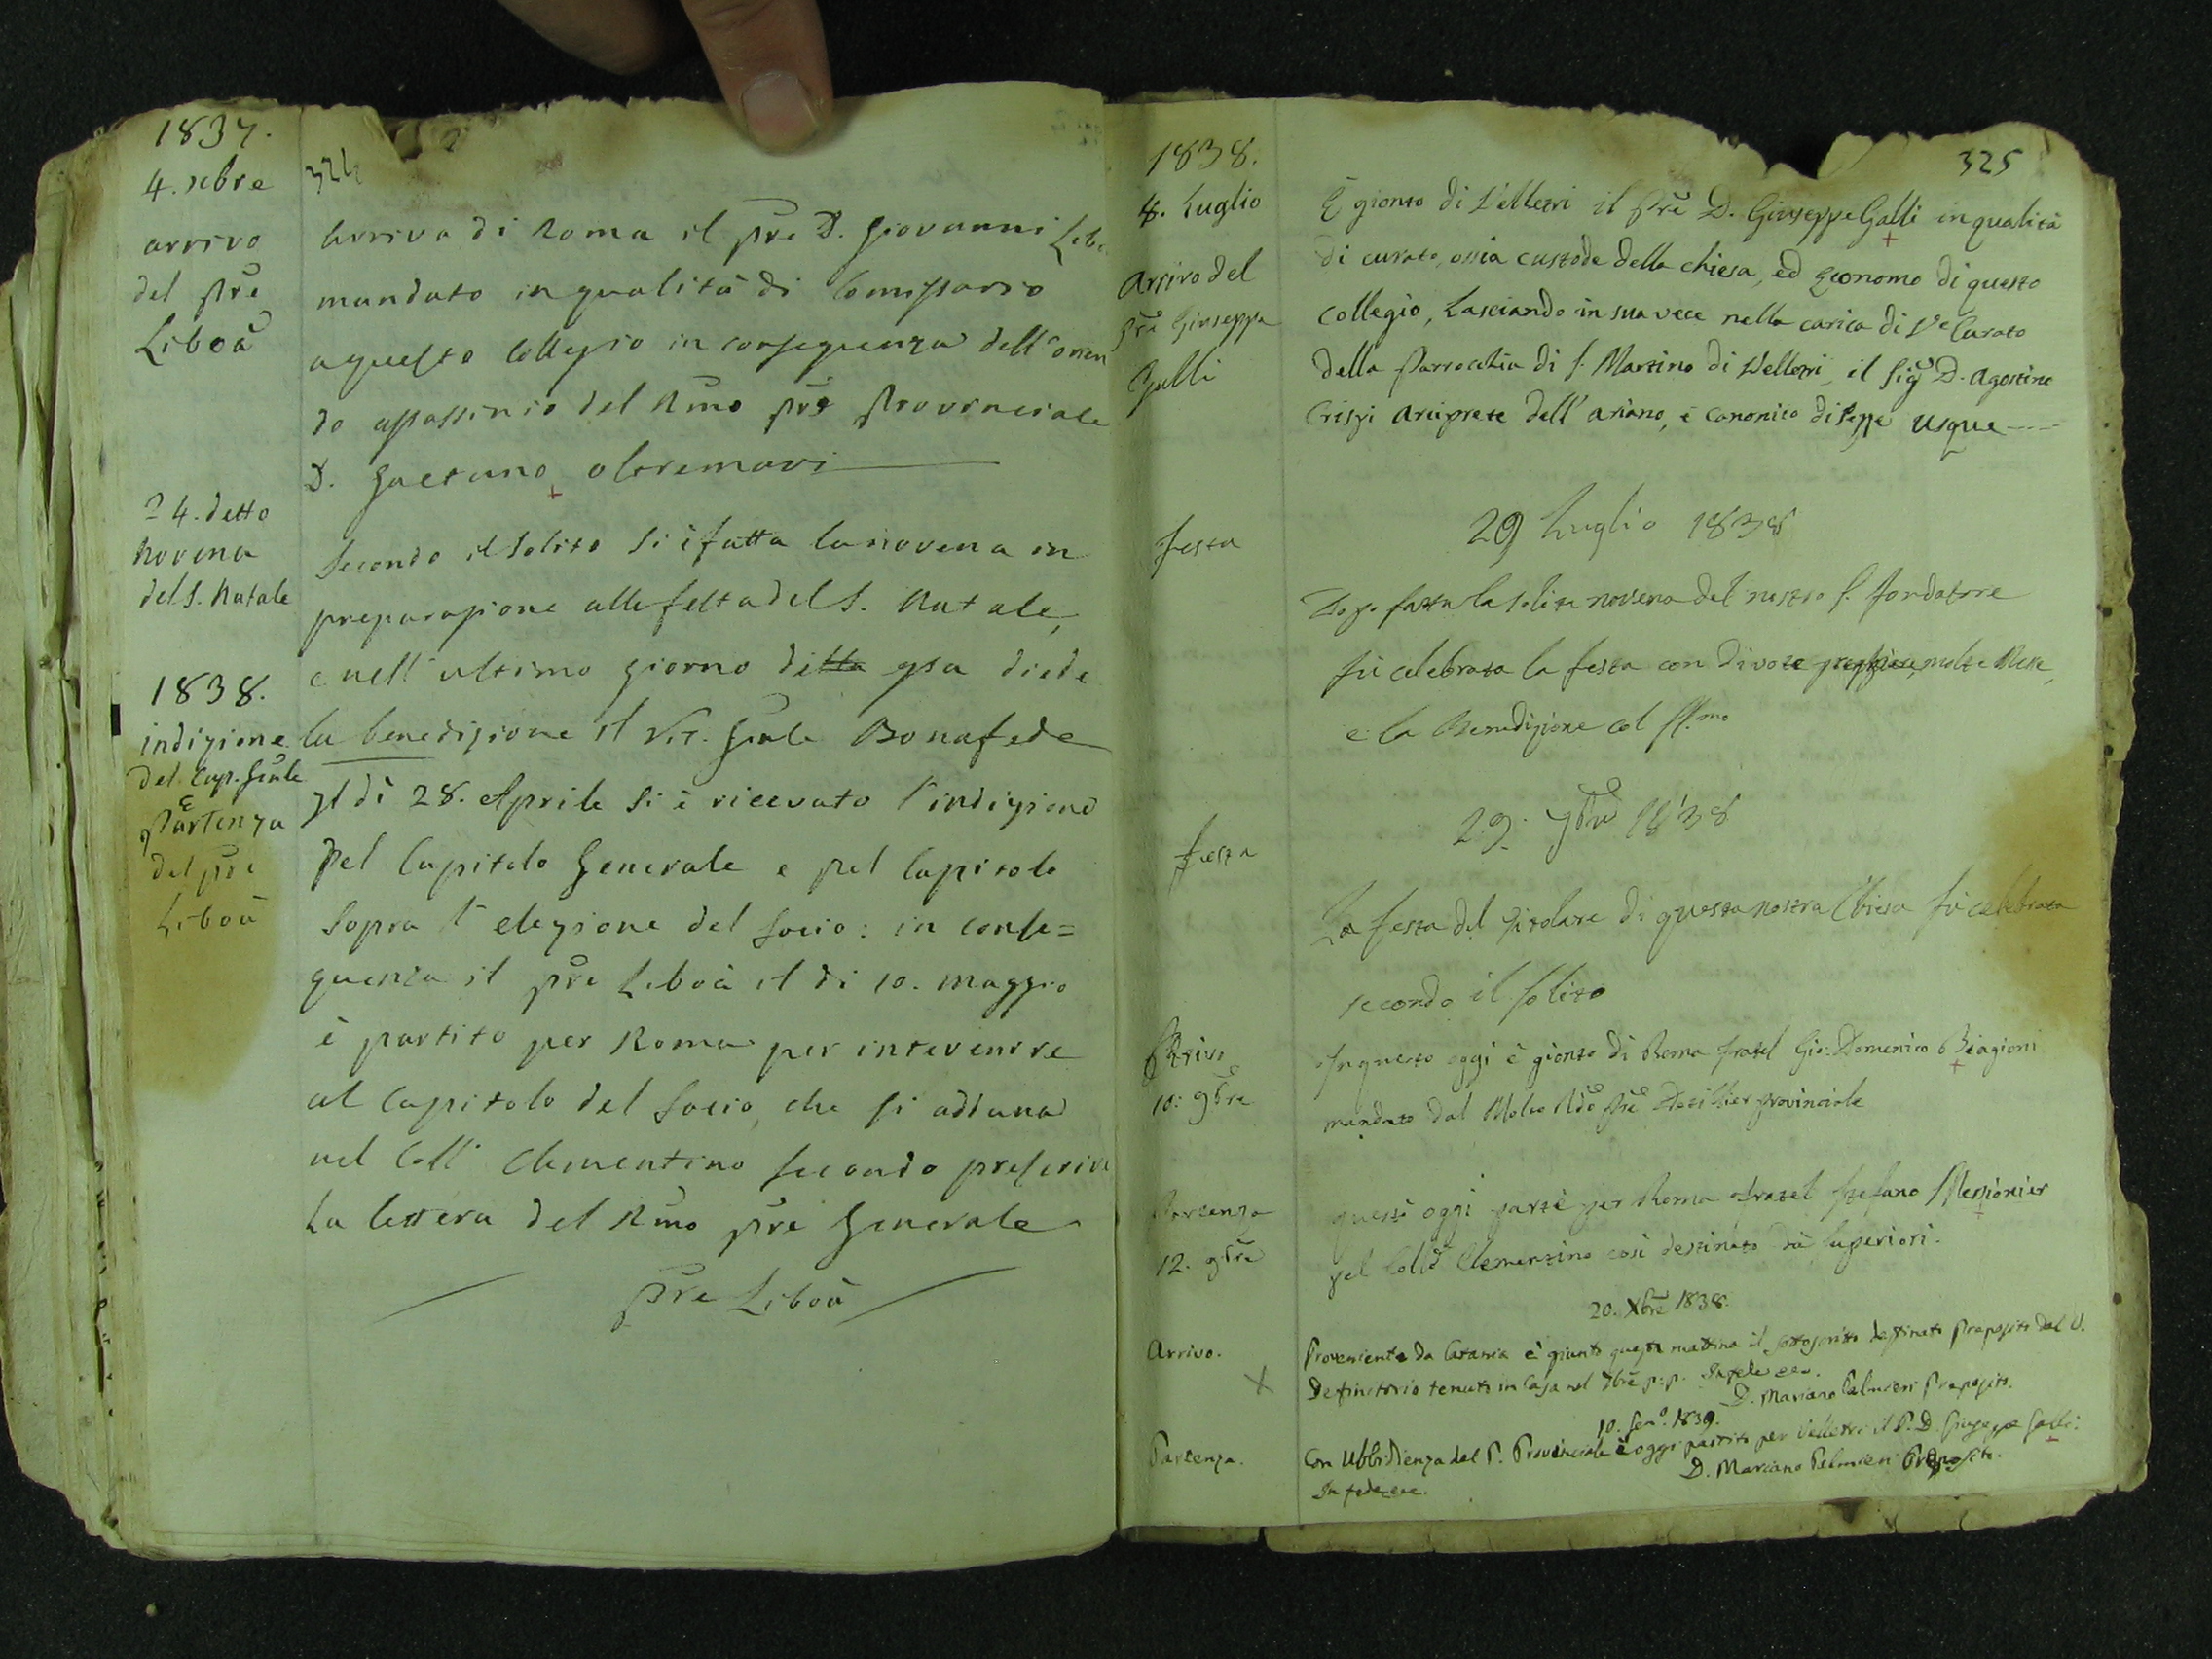 1837.
324
4. xbre
arrivo
del pre
Liboà
Arriva di Roma il pre D. Giovanni Libo
mandato in qualità di Comissario
a questo Collegio in conseguenza dell'orren
do assassinio del Rmo pre Provinciale
D. Gaetano Oltremari
24. detto
Novena
del S. Natale
Secondo il solito si è fatta la novena in
preparazione alla festa del S. Natale,
e nell'ultimo giorno detta gsa diede
la benedizione il Vic. Gnle Bonafede
1838.
indizione
del Cap. Gnle
e
Partenza
del pre
Liboà
Il dì 28. Aprile si è ricevuto l'indizione
pel Capitolo Generale e pel Capitolo
sopra l'elezione del Socio: in conse=
guenza il pre Liboà il di 10. maggio
è partito per Roma per intervenire
al Capitolo del Socio, che si aduna
nel Coll. Clementino secondo prescrive
la lettera del Rmo pre Generale
Pre Liboà
325
1838.
8. Luglio
Arrivo del
Pre Giuseppe
Galli
È gionto di Velletri il Pre D. Giuseppe Galli in qualità
di curato, ossia custode della chiesa, ed Economo di questo
Collegio, Lasciando in sua vece nella carica di Ve Curato
della Parrocchia di S. Martino di Velletri, il Sigr D. Agostino
Crispi Arciprete dell'ariano, e canonico di Seppe usque
Festa
29 Luglio 1838
Dopo fatta la solita novena del nostro S. Fondatore
fù celebrata la festa con divote preghiere, molte Messe,
e la Benedizione col SS.mo
Festa
29. 7bre 1838
La festa del Titolare di questa nostra Chiesa fù celebrata
secondo il solito
Arrivo
10: 9bre
In questo oggi è gionto di Roma fratel Gio: Domenico Biagioni
mandato dal Molto Rdo Pre Provinciale
Partenza
12. 9bre
questo oggi parte per Roma fratel Stefano
pel Collo Clementino così destinato da superiori.
20. Xbre 1838.
Arrivo.
X
Proveniente da Catania è giunto questa mattina il sottoscritto destinato Preposito dal V.
Definitorio tenuto in Casa nel 7bre p:p. In fede ecc.
D. Mariano Palmieri Preposito.
10. Gen.o 1839.
Partenza.
Con Ubbidienza del P. Provinciale è oggi partito per Velletri il P. D. Giuseppe Galli:
In fede ecc.
D. Mariano Palmieri Preposito.